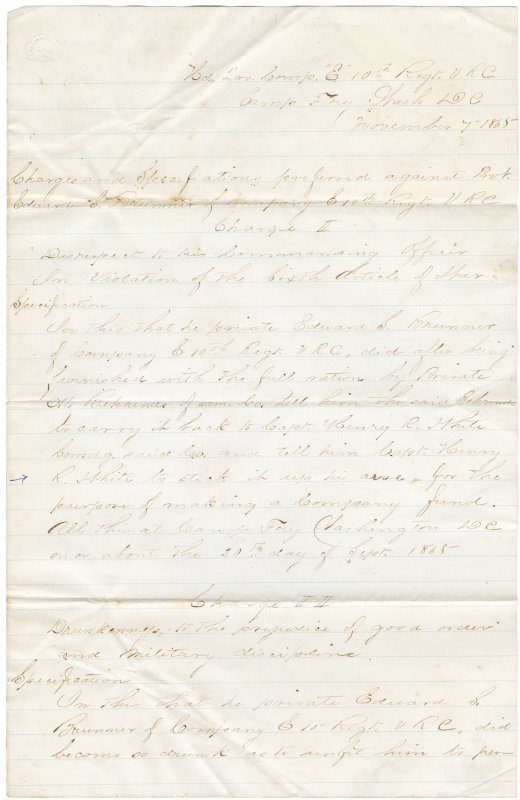 Hd. Qrs. Comp. "E" 10th Regt. V R C
Camp Fry Wash D C
November 7" 1865
Charges and Specifications preferred against Privt.
Edward S. Brunner of Company E 10th Regt. V R C
Charge I
Disrespect to his Commanding Officer
In Violation of the Sixth Article of War.
Specification
In this that he private Edward S. Brunner
of Company E 10th Regt. V R C, did after being
furnished with the full ration by Private
of same Co. tell him the said
to carry it back to Capt. Henry R. White
Comdg. said Co. and tell him Capt. Henry
R. White to stick it up his arse, for the
purpose of making a Company fund.
All this at Camp Fry Washington D C
on or about the 20th day of Sept. 1865
Charge II
Drunkenness, to the prejudice of good order
and Military discipline.
Specification
In this that he private Edward S.
Brunner of Company E 10" Regt. V R C, did
become so drunk as to unfit him to per-